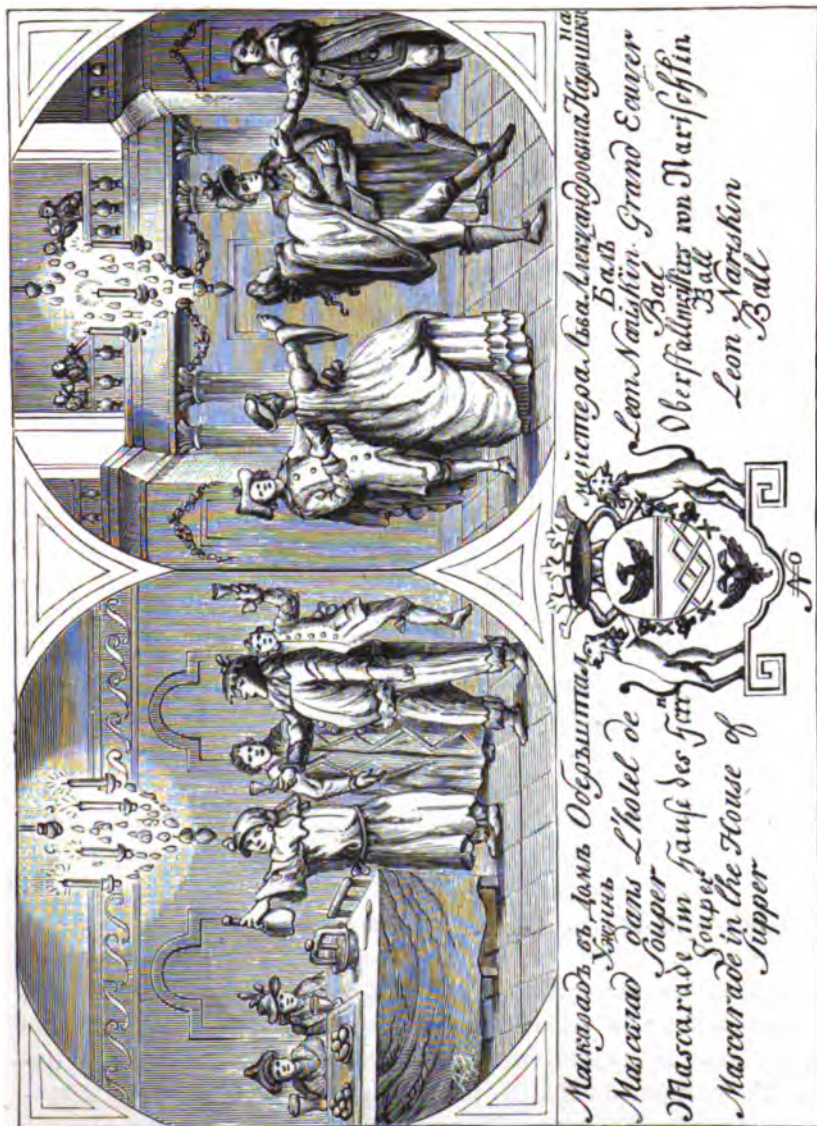 на
Маскарадъ въ Домѣ Оберъштал мейстера Льва Александровича Нарышки
Ужинъ Балъ
Mascarad dans L'hotel de Leon Nariskin. Grand Ecuyer
Souper Bal
Mascarade im Hause des Herrn Oberstallmeisters von Narischkin
Souper Ball
Mascarade in the House of Leon Nariskin
Supper Ball